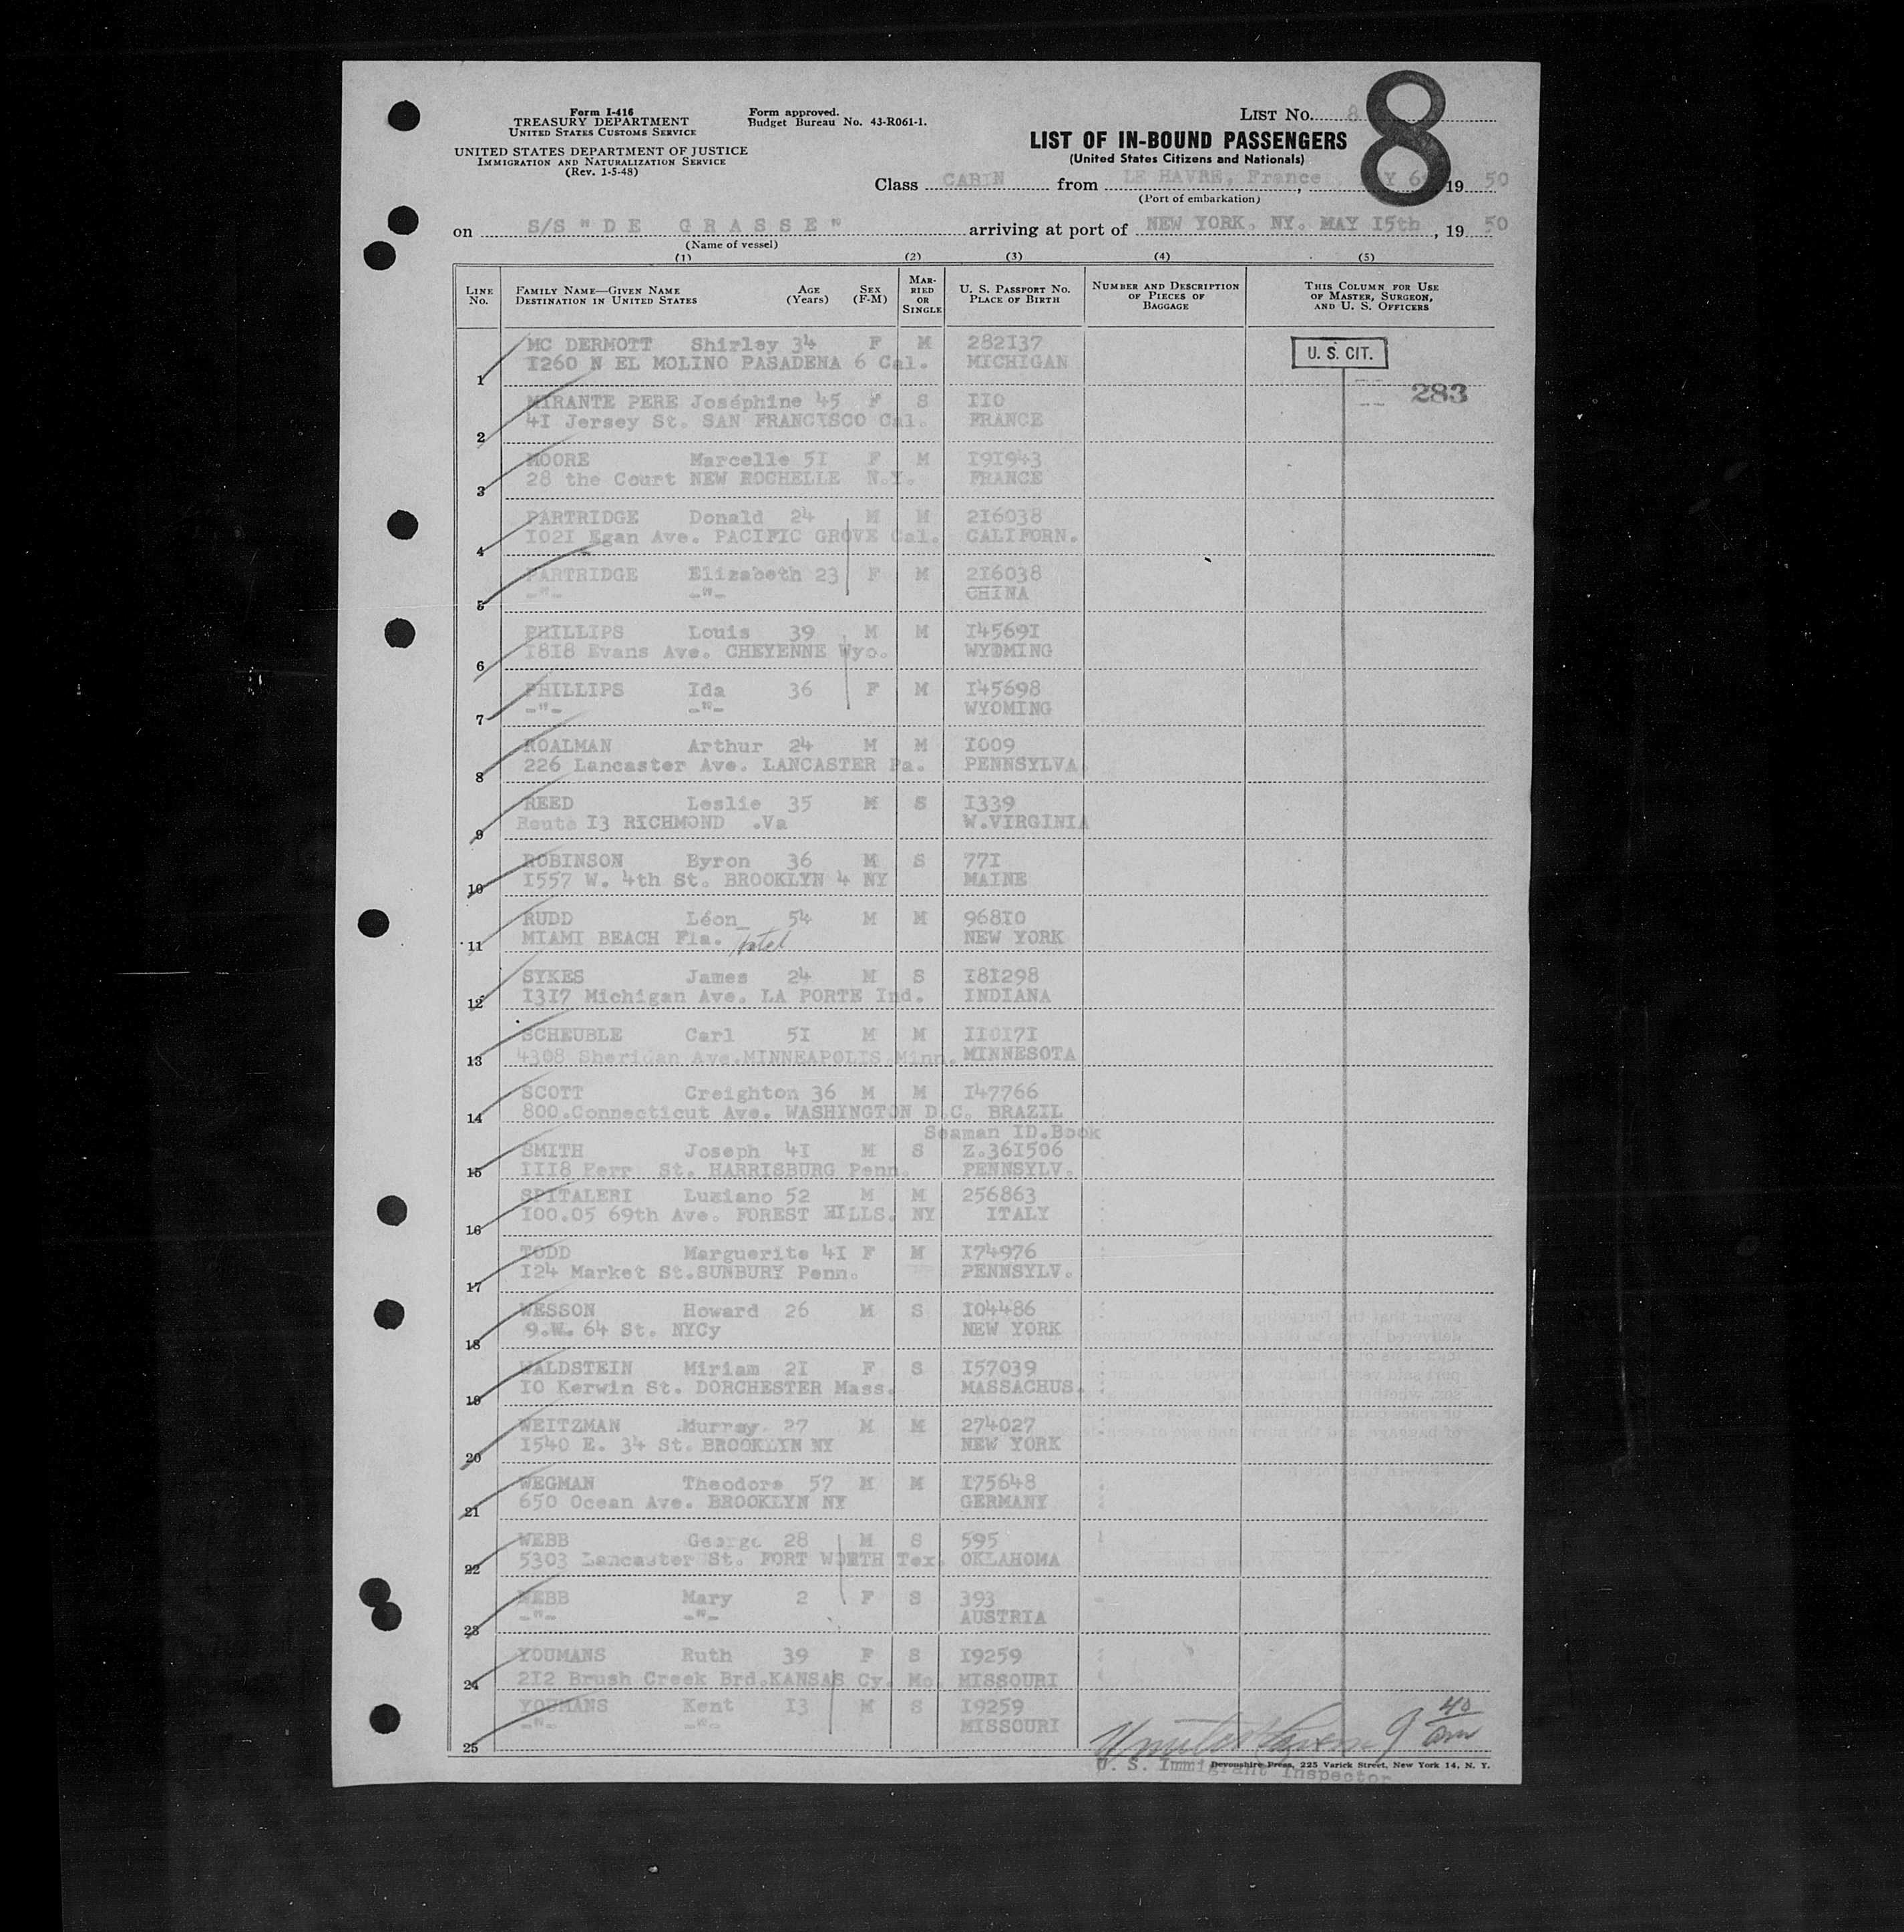 Form I-416
TREASURY DEPARTMENT
UNITED STATES CUSTOMS SERVICE
UNITED STATES DEPARTMENT OF JUSTICE
IMMIGRATION AND NATURALIZATION SERVICE
(Rev. 1-5-48)
Form approved.
Budget Bureau No. 43-R061-1.
LIST NO. 8
8
LIST OF IN-BOUND PASSENGERS
(United States Citizens and Nationals)
Class CABIN from LE HAVRE, France, Y 6 19 50
(Port of embarkation)
on S/S "DE GRASSE" arriving at port of NEW YORK. NY. MAY I5th, 19 50
(Name of vessel)
(1) (2) (3) (4) (5)
LINE NO.
FAMILY NAME—GIVEN NAME
DESTINATION IN UNITED STATES
AGE (Years)
SEX (F-M)
MARRIED OR SINGLE
U. S. PASSPORT NO.
PLACE OF BIRTH
NUMBER AND DESCRIPTION OF PIECES OF BAGGAGE
THIS COLUMN FOR USE OF MASTER, SURGEON, AND U. S. OFFICERS
MC DERMOTT Shirley 34 F M 282I37
U. S. CIT.
1 I260 N EL MOLINO PASADENA 6 Cal. MICHIGAN
283
MIRANTE PERE Joséphine 45 F S IIO
2 4I Jersey St. SAN FRANCISCO Cal. FRANCE
MOORE Marcelle 5I F M I9I943
3 28 the Court NEW ROCHELLE N.Y. FRANCE
PARTRIDGE Donald 24 M M 2I6038
4 I02I Egan Ave. PACIFIC GROVE Cal. CALIFORN.
PARTRIDGE Elizabeth 23 F M 2I6038
5 -"- -"- CHINA
PHILLIPS Louis 39 M M I4569I
6 I8I8 Evans Ave. CHEYENNE Wyo. WYOMING
PHILLIPS Ida 36 F M I45698
7 -"- -"- WYOMING
ROALMAN Arthur 24 M M I009
8 226 Lancaster Ave. LANCASTER Pa. PENNSYLVA.
REED Leslie 35 M S I339
9 Route I3 RICHMOND .Va W.VIRGINIA
ROBINSON Byron 36 M S 77I
10 I557 W. 4th St. BROOKLYN 4 NY MAINE
RUDD Léon 54 M M 968I0
11 MIAMI BEACH Fla. hotel NEW YORK
SYKES James 24 M S I8I298
12 I3I7 Michigan Ave. LA PORTE Ind. INDIANA
SCHEUBLE Carl 5I M M II0I7I
13 4308 Sheridan Ave.MINNEAPOLIS.Minn. MINNESOTA
SCOTT Creighton 36 M M I47766
14 800.Connecticut Ave. WASHINGTON D.C. BRAZIL
Seaman ID.Book
SMITH Joseph 4I M S Z.36I506
15 III8 Ferr St. HARRISBURG Penn. PENNSYLV.
SPITALERI Luziano 52 M M 256863
16 I00.05 69th Ave. FOREST HILLS. NY ITALY
TODD Marguerite 4I F M I74976
17 I24 Market St.SUNBURY Penn. PENNSYLV.
WESSON Howard 26 M S I04486
18 9.W. 64 St. NYCy NEW YORK
WALDSTEIN Miriam 2I F S I57039
19 I0 Kerwin St. DORCHESTER Mass. MASSACHUS.
WEITZMAN Murray. 27 M M 274027
20 I540 E. 34 St. BROOKLYN NY NEW YORK
WEGMAN Theodore 57 M M I75648
21 650 Ocean Ave. BROOKLYN NY GERMANY
WEBB George 28 M S 595
22 5303 Lancaster St. FORT WORTH Tex. OKLAHOMA
WEBB Mary 2 F S 393
23 -"- -"- AUSTRIA
YOUMANS Ruth 39 F S I9259
24 2I2 Brush Creek Brd.KANSAS Cy. Mo. MISSOURI
YOUMANS Kent I3 M S I9259
25 -"- -"- MISSOURI
9 40 am
U. S. Immigrant Inspector
Devonshire Press, 225 Varick Street, New York 14, N. Y.